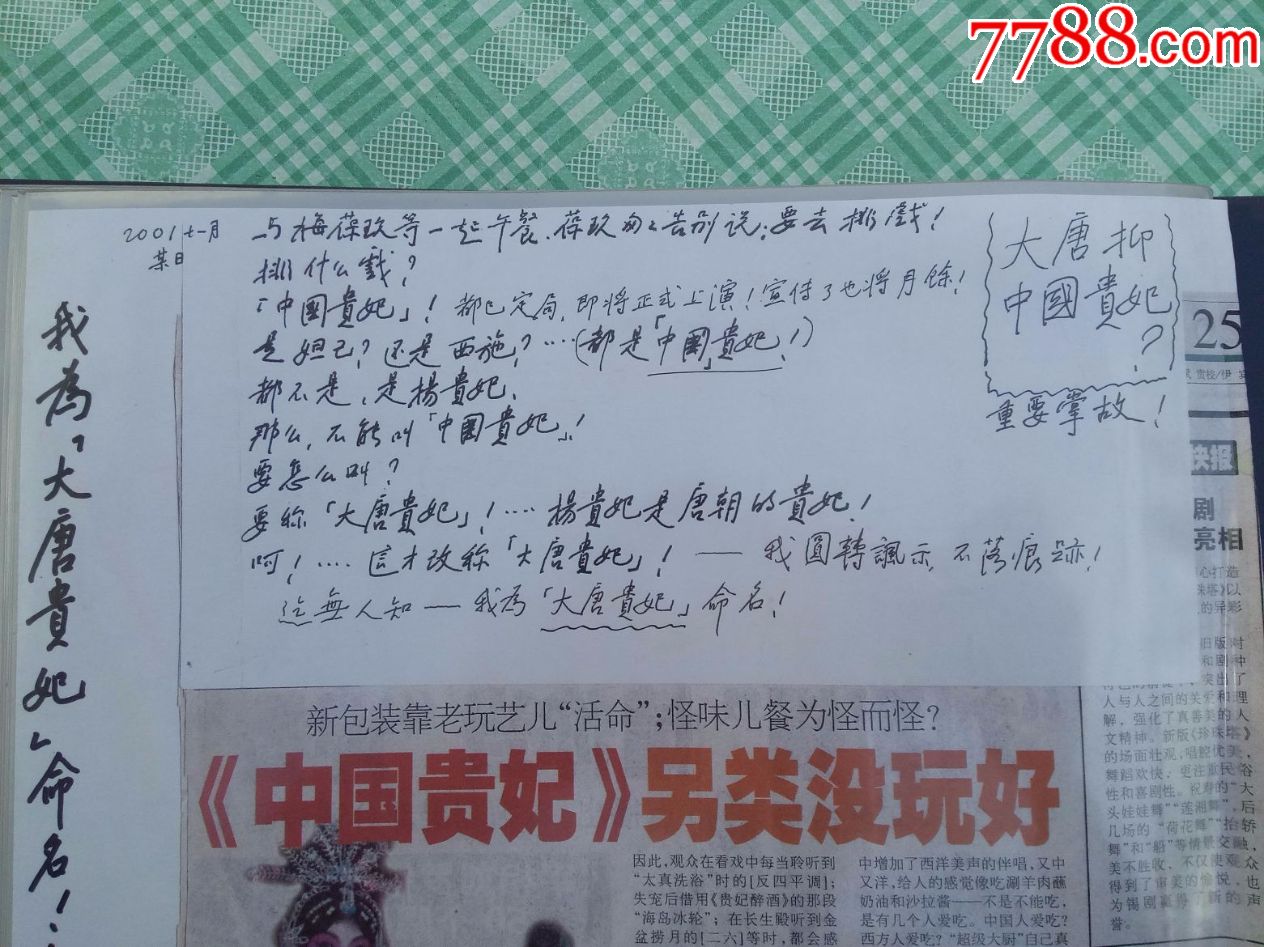 7788.com
2001 十一月
某日
我為「大唐貴妃」命名！
与梅葆玖等一起午餐、葆玖匆匆告别说：要去排戲！
排什么戲？
「中國貴妃」！都已定局，即将正式上演！宣传了也将月馀！
是妲己？还是西施？····（都是「中國貴妃」！）
都不是，是楊貴妃，
那么，不能叫「中國貴妃」！
要怎么叫？
要称「大唐貴妃」！····楊貴妃是唐朝的貴妃！
呵！····這才改称「大唐貴妃」！——我圓轉諷示，不落痕跡！
迄無人知——我為「大唐貴妃」命名！
大唐抑
中國貴妃
？
重要掌故！
25
责校/伊
快报
剧
亮相
新包装靠老玩艺儿“活命”；怪味儿餐为怪而怪？
《中国贵妃》另类没玩好
因此，观众在看戏中每当聆听到
“太真洗浴”时的[反四平调]；
失宠后借用《贵妃醉酒》的那段
“海岛冰轮”；在长生殿听到金
盆捞月的[二六]等时，都会感
中增加了西洋美声的伴唱，又中
又洋，给人的感觉像吃涮羊肉蘸
奶油和沙拉酱——不是不能吃，
是有几个人爱吃。中国人爱吃？
西方人爱吃？“超级大厨”自己真
心打造
珠塔》以
的异彩
旧版对
和剧种
突出了
人与人之间的关爱和理
解，强化了真善美的人
文精神。新版《珍珠塔》
的场面壮观，唱腔优美，
舞蹈欢快，更注重民俗
性和喜剧性。祝寿的“大
头娃娃舞”“莲湘舞”，后
几场的“荷花舞”“抬轿
舞”和“船”等情景交融，
美不胜收，不仅使观众
得到了审美的愉悦，也
为锡剧赢得了新的声
誉。